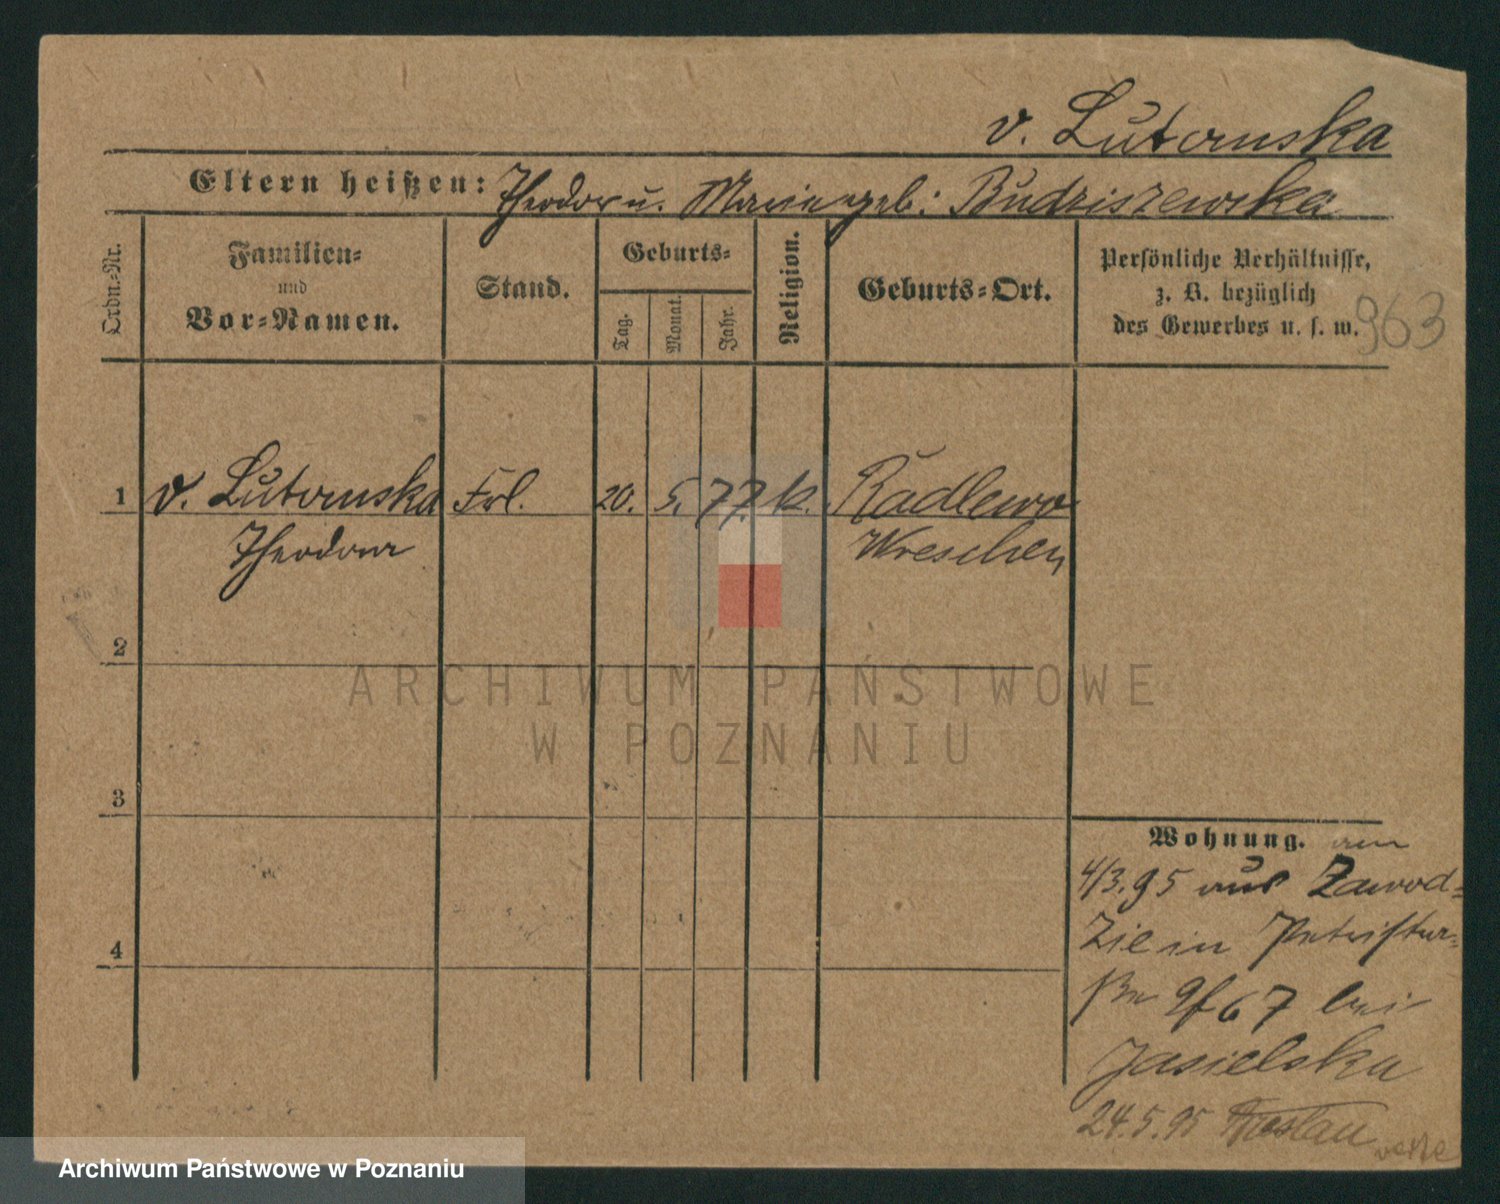 v. Lutomska
Eltern heißen: Theodor u. Marie geb: Budziszewska
Ordn.-Nr.
Familien-
und
Vor-Namen.
Stand.
Geburts-
Tag.
Monat.
Jahr.
Religion.
Geburts-Ort.
Persönliche Verhältnisse,
z. B. bezüglich
des Gewerbes u. s. w.
963
1 v. Lutomska Frl. 20. 5. 77. k. Radlewo
Theodora Wreschen
2
3
4
Wohnung. am
4/3.95 aus Zawod-
zie in Petristra-
ße 67 bei
Jasielska
24.5.95 Breslau
verte
ARCHIWUM PAŃSTWOWE
W POZNANIU
Archiwum Państwowe w Poznaniu